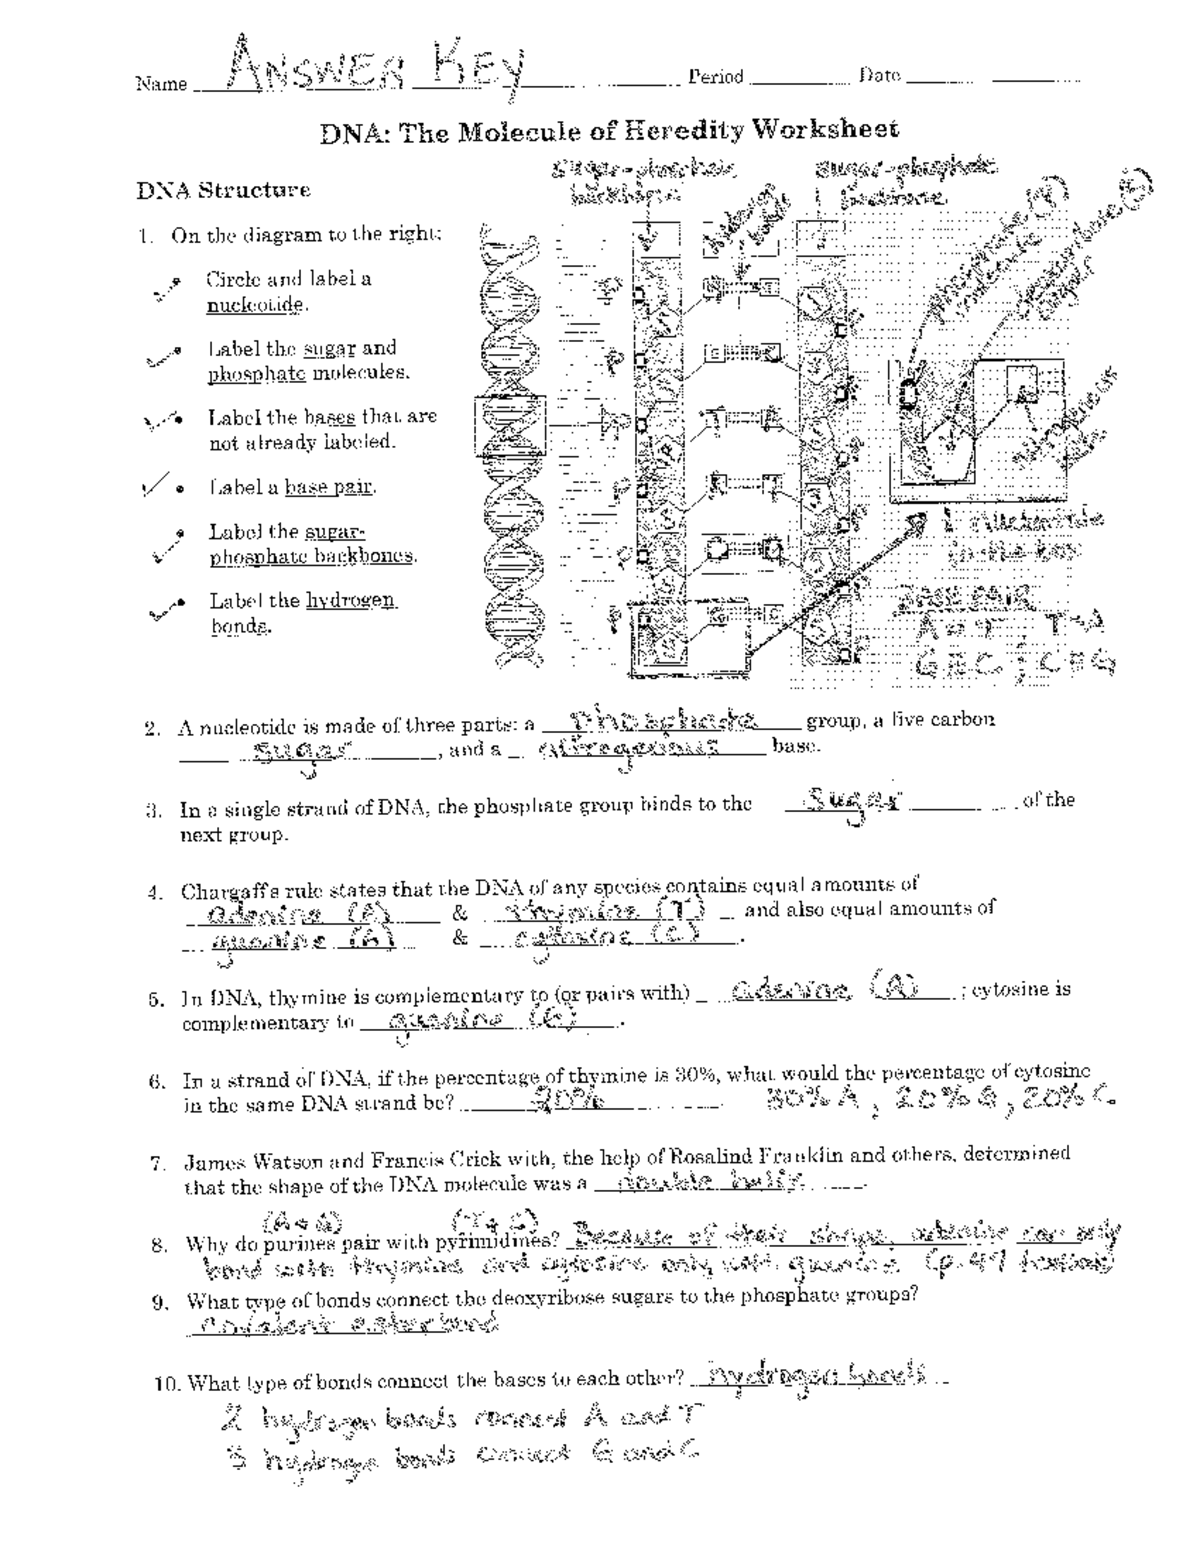 Name ANSWER KEY Period Date
DNA: The Molecule of Heredity Worksheet
sugar-phosphate backbone
sugar-phosphate backbone
hydrogen bonds
DNA Structure
1. On the diagram to the right:
• Circle and label a
nucleotide.
• Label the sugar and
phosphate molecules.
• Label the bases that are
not already labeled.
• Label a base pair.
• Label the sugar-
phosphate backbones.
• Label the hydrogen
bonds.
1 nucleotide
in the box
BASE PAIR
A=T, T=A
G≡C; C≡G
2. A nucleotide is made of three parts: a phosphate group, a five carbon
sugar, and a nitrogenous base.
3. In a single strand of DNA, the phosphate group binds to the sugar of the
next group.
4. Chargaff's rule states that the DNA of any species contains equal amounts of
adenine (A) & thymine (T) and also equal amounts of
guanine (G) & cytosine (C).
5. In DNA, thymine is complementary to (or pairs with) adenine (A); cytosine is
complementary to guanine (G).
6. In a strand of DNA, if the percentage of thymine is 30%, what would the percentage of cytosine
in the same DNA strand be? 20% 30% A, 20% G, 20% C
7. James Watson and Francis Crick with, the help of Rosalind Franklin and others, determined
that the shape of the DNA molecule was a double helix.
(A + G) (T + C)
8. Why do purines pair with pyrimidines? Because of their shape, adenine can only
bond with thymine and cytosine only with guanine (p. 49
9. What type of bonds connect the deoxyribose sugars to the phosphate groups?
covalent ester bond
10. What type of bonds connect the bases to each other? hydrogen bonds
2 hydrogen bonds connect A and T
3 hydrogen bonds connect G and C